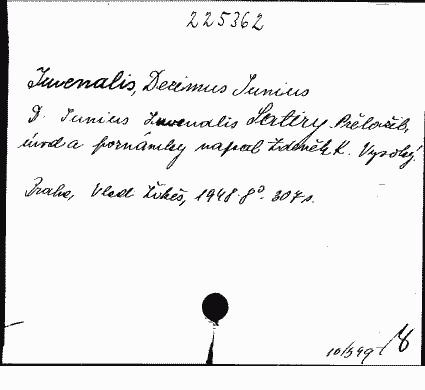 225362
Juvenalis, Decimus Junius
D. Junius Juvenalis Satiry. Přeložil,
úvod a poznámky napsal Zdeněk K. Vysoký.
Praha, Vlad. Žikeš, 1948. 8°. 307 s.
10/349